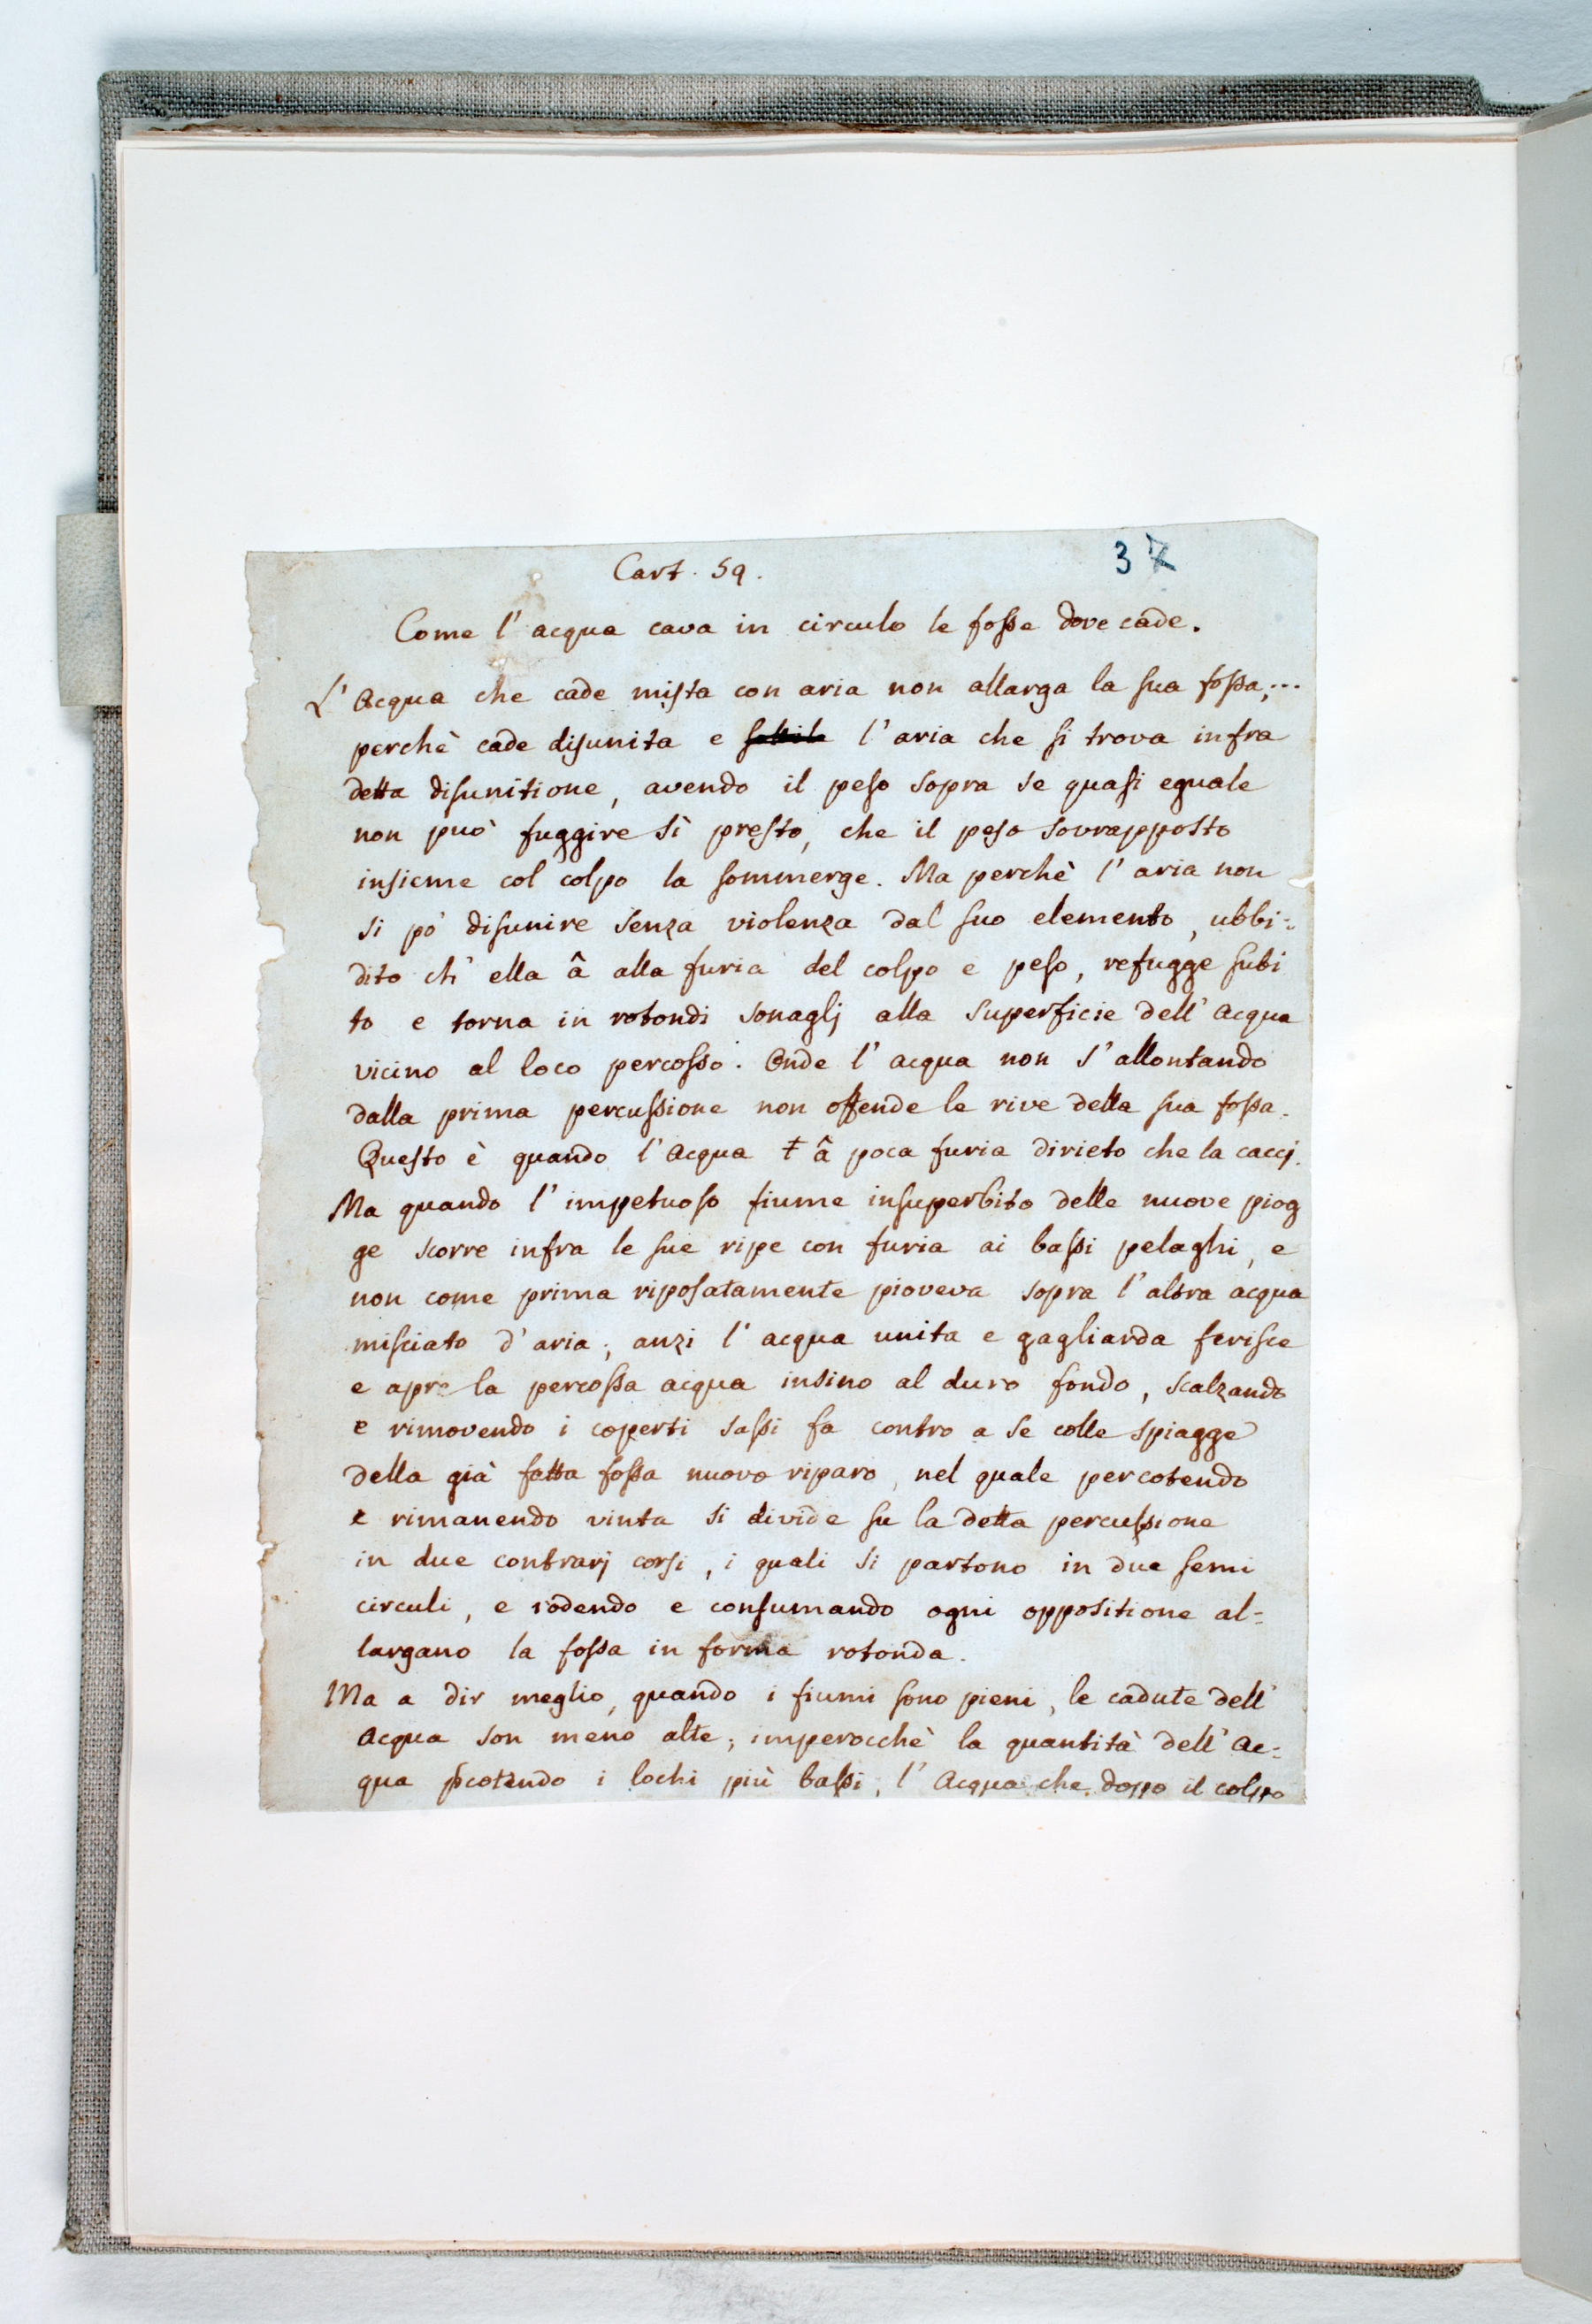 Cart. 59.
37
Come l' acqua cava in circulo le fosse dove cade.
L' Acqua che cade mista con aria non allarga la sua fossa;...
perchè cade disunita e l' aria che si trova infra
detta disunitione, avendo il peso sopra se quasi eguale
non può fuggire sì presto, che il peso sovrapposto
insieme col colpo la sommerge. Ma perchè l' aria non
si po' disunire senza violenza dal suo elemento, ubbi-
dito ch' ella â alla furia del colpo e peso, refugge subi
to e torna in rotondi sonaglj alla superficie dell' acqua
vicino al loco percosso. Onde l' acqua non s' allontando
dalla prima percussione non offende le rive della sua fossa.
Questo è quando l' Acqua â poca furia dirieto che la caccj.
Ma quando l' impetuoso fiume insuperbito delle nuove piog
ge scorre infra le sue ripe con furia ai bassi pelaghi, e
non come prima riposatamente pioveva sopra l' altra acqua
misciato d' aria; anzi l' acqua unita e gagliarda ferisce
e apre la percossa acqua insino al duro fondo, scalzando
e rimovendo i coperti sassi fa contro a se colle spiagge
della già fatta fossa nuovo riparo, nel quale percotendo
e rimanendo vinta si divide su la detta percussione
in due contrarj corsi, i quali si partono in due semi
circuli, e rodendo e consumando ogni oppositione al=
largano la fossa in forma rotonda.
Ma a dir meglio, quando i fiumi sono pieni, le cadute dell'
Acqua son meno alte; imperocchè la quantità dell' Ac=
qua pcotendo i lochi più bassi, l' Acqua che doppo il colpo